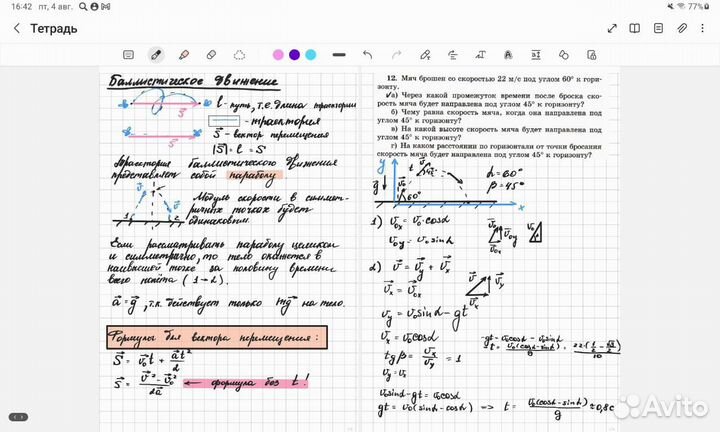 16:42 пт, 4 авг.
77%
Тетрадь
Баллистическое движение
l - путь, т.е. длина траектории
- траектория
S⃗ - вектор перемещения
|S⃗| = l = S
Траектория баллистического движения
представляет собой параболу
Модуль скорости в симмет-
ричных точках будет
одинаковым.
Если рассматривать параболу целиком
и симметрично, то тело окажется в
наивысшей точке за половину времени
всего полёта (1→2).
a⃗ = g⃗, т.к. действует только mg⃗ на тело.
Формулы для вектора перемещения:
S⃗ = v⃗₀t + a⃗t²/2
S⃗ = (v⃗² - v⃗₀²)/2a⃗ ← формула без t!
12. Мяч брошен со скоростью 22 м/с под углом 60° к гори-
зонту.
√а) Через какой промежуток времени после броска ско-
рость мяча будет направлена под углом 45° к горизонту?
б) Чему равна скорость мяча, когда она направлена под
углом 45° к горизонту?
в) На какой высоте скорость мяча будет направлена под
углом 45° к горизонту?
г) На каком расстоянии по горизонтали от точки бросания
скорость мяча будет направлена под углом 45° к горизонту?
y t v⃗ 45° α = 60°
g⃗ v⃗₀ 60° β = 45°
x
1) v₀ₓ = v₀·cosα
v₀y = v₀ sinα
2) v⃗ = v⃗y + v⃗ₓ
v⃗ₓ = v⃗₀ₓ
vy = v₀sinα - gt
vₓ = v₀cosα
tgβ = vₓ/vy = 1
vy = vₓ
-gt = v₀cosα - v₀sinα
gt = v₀(cosα - sinα)/g = 22(1/2 - √3/2)/10
v₀sinα - gt = v₀cosα
gt = v₀(sinα - cosα) => t = v₀(cosα - sinα)/g ± 0,8 с
Avito